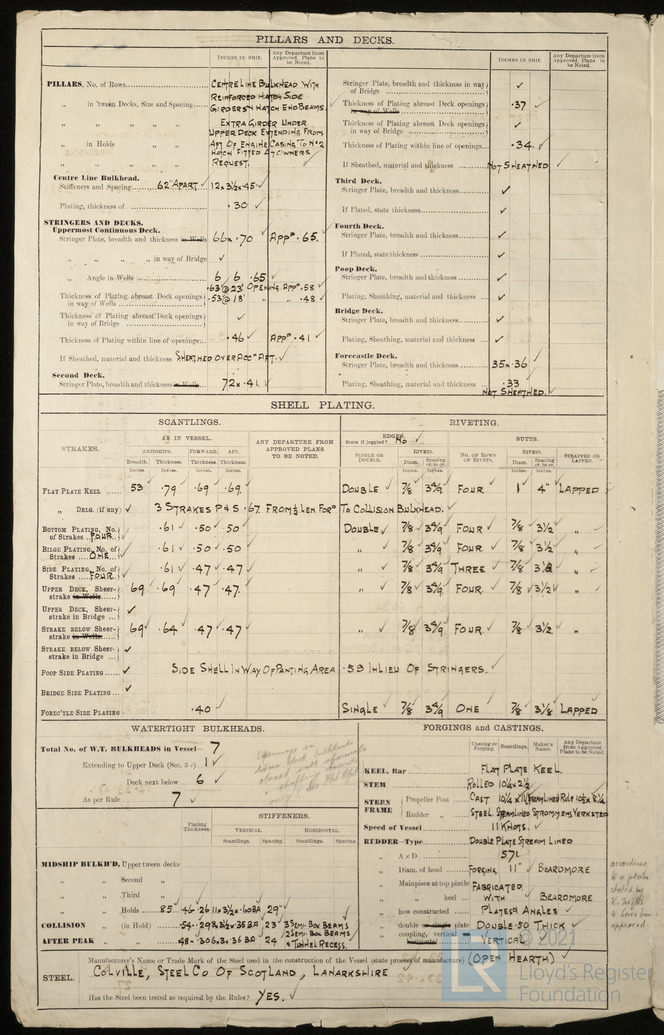 PILLARS AND DECKS.
INCHES IN SHIP.
Any Departure from Approved Plans to be Noted.
PILLARS, No. of Rows
CENTRE LINE BULKHEAD WITH
REINFORCED HATCH SIDE
„ in 'tween Decks, Size and Spacing
GIRDERS & HATCH END BEAMS.
EXTRA GIRDER UNDER
UPPER DECK EXTENDING FROM
„ in Holds „ „
AFT OF ENGINE CASING TO No 2
HATCH FITTED AT OWNERS
REQUEST.
Centre Line Bulkhead.
Stiffeners and Spacing 62" APART 12 x 3½ x .45
Plating, thickness of .30
STRINGERS AND DECKS.
Uppermost Continuous Deck.
Stringer Plate, breadth and thickness in Wells 66 x .70 APPD .65.
„ „ „ „ in way of Bridge
„ Angle in Wells 6 6 .65
Thickness of Plating abreast Deck openings in way of Wells .63 @ 23' OPENING APP. .58
.53 @ 18' „ „ .48
Thickness of Plating abreast Deck openings in way of Bridge
Thickness of Plating within line of openings .46 APPD .41
If Sheathed, material and thickness SHEATHED OVER ACCN AFT.
Second Deck.
Stringer Plate, breadth and thickness in Wells 72 x .41.
INCHES IN SHIP.
Any Departure from Approved Plans to be Noted.
Stringer Plate, breadth and thickness in way of Bridge
Thickness of Plating abreast Deck openings in way of Wells .37
Thickness of Plating abreast Deck openings in way of Bridge
Thickness of Plating within line of openings .34.
If Sheathed, material and thickness NOT SHEATHED
Third Deck.
Stringer Plate, breadth and thickness
If Plated, state thickness
Fourth Deck.
Stringer Plate, breadth and thickness
If Plated, state thickness
Poop Deck.
Stringer Plate, breadth and thickness
Plating, Sheathing, material and thickness
Bridge Deck.
Stringer Plate, breadth and thickness
Plating, Sheathing, material and thickness
Forecastle Deck.
Stringer Plate, breadth and thickness 35 x .36
Plating, Sheathing, material and thickness .33
NOT SHEATHED.
SHELL PLATING.
SCANTLINGS.
RIVETING.
STRAKES.
AS IN VESSEL.
AMIDSHIPS. FORWARD. AFT.
Breadth. Thickness. Thickness. Thickness.
Inches. Inches. Inches. Inches.
ANY DEPARTURE FROM APPROVED PLANS TO BE NOTED.
EDGES.
State if joggled? NO
SINGLE OR DOUBLE.
RIVETS.
Diam. Spacing cr. to cr.
Inches. Inches.
BUTTS.
No. OF ROWS OF RIVETS.
RIVETS.
Diam. Spacing cr. to cr.
Inches. Inches.
STRAPPED OR LAPPED.
FLAT PLATE KEEL 53 .79 .69 .69. DOUBLE 7/8 FOUR 1" 4" LAPPED
„ DBLG. (if any) 3 STRAKES P & S .67 FROM ¼ LEN FORD TO COLLISION BULKHEAD.
BOTTOM PLATING, No. of Strakes FOUR .61 .50 .50 DOUBLE 7/8 FOUR 7/8 3½ „
BILGE PLATING, No. of Strakes ONE .61 .50 .50 „ 7/8 FOUR 7/8 3½ „
SIDE PLATING, No. of Strakes FOUR .61 .47 .47 „ 7/8 THREE 7/8 „
UPPER DECK, Sheerstrake in Wells 69 .69 .47 .47. „ 7/8 FOUR 7/8 3½ „
UPPER DECK, Sheerstrake in Bridge
STRAKE BELOW Sheerstrake in Wells 69 .64 .47 .47 „ 7/8 FOUR. 7/8 3½ „
STRAKE BELOW Sheerstrake in Bridge
POOP SIDE PLATING SIDE SHELL IN WAY OF PANTING AREA .59 IN LIEU OF STRINGERS.
BRIDGE SIDE PLATING
FOREC'TLE SIDE PLATING .40 SINGLE 7/8 ONE 7/8 3⅛ LAPPED
WATERTIGHT BULKHEADS.
Total No. of W.T. BULKHEADS in Vessel— 7
Extending to Upper Deck (Sec. 3 c) 1
Deck next below 6
As per Rule 7
STIFFENERS.
Plating Thickness.
VERTICAL. HORIZONTAL.
Scantlings. Spacing Scantlings. Spacing
MIDSHIP BULKH'D, Upper tween decks
„ „ Second „
„ „ Third „
„ „ Holds 85 .46-.26 11 x 3½ x .60 BA 29"
COLLISION (in Hold) .54-.29 8 x 3½ x .35 BA 23" 3 SEMI-BOX BEAMS
AFTER PEAK „ .48-.30 24" 2 SEMI-BOX BEAMS
& TUNNEL RECESS.
FORGINGS and CASTINGS.
Casting or Forging. Scantlings. Maker's Name. Any Departure from Approved Plans to be Noted.
KEEL, Bar FLAT PLATE KEEL.
STEM ROLLED 10¼ x 2½
STERN FRAME
Propeller Post CAST STREAMLINED RULE
Rudder „ STEEL STREAMLINED STROMMENS VERKSTED
Speed of Vessel 11 KNOTS.
RUDDER—Type DOUBLE PLATE STREAM LINED
„ A x D 571
„ Diam. of head FORGING 11" BEARDMORE
„ Mainpiece at top pintle FABRICATED
„ „ heel WITH BEARDMORE
„ how constructed PLATES & ANGLES
„ double or single plate DOUBLE .50 THICK
„ coupling, vertical or horizontal VERTICAL
STEEL.
Manufacturer's Name or Trade Mark of the Steel used in the construction of the Vessel (state process of manufacture) (OPEN HEARTH)
COLVILLE, STEEL CO OF SCOTLAND, LANARKSHIRE
Has the Steel been tested as required by the Rules? YES.
© 2021
LR
Lloyd's Register
Foundation